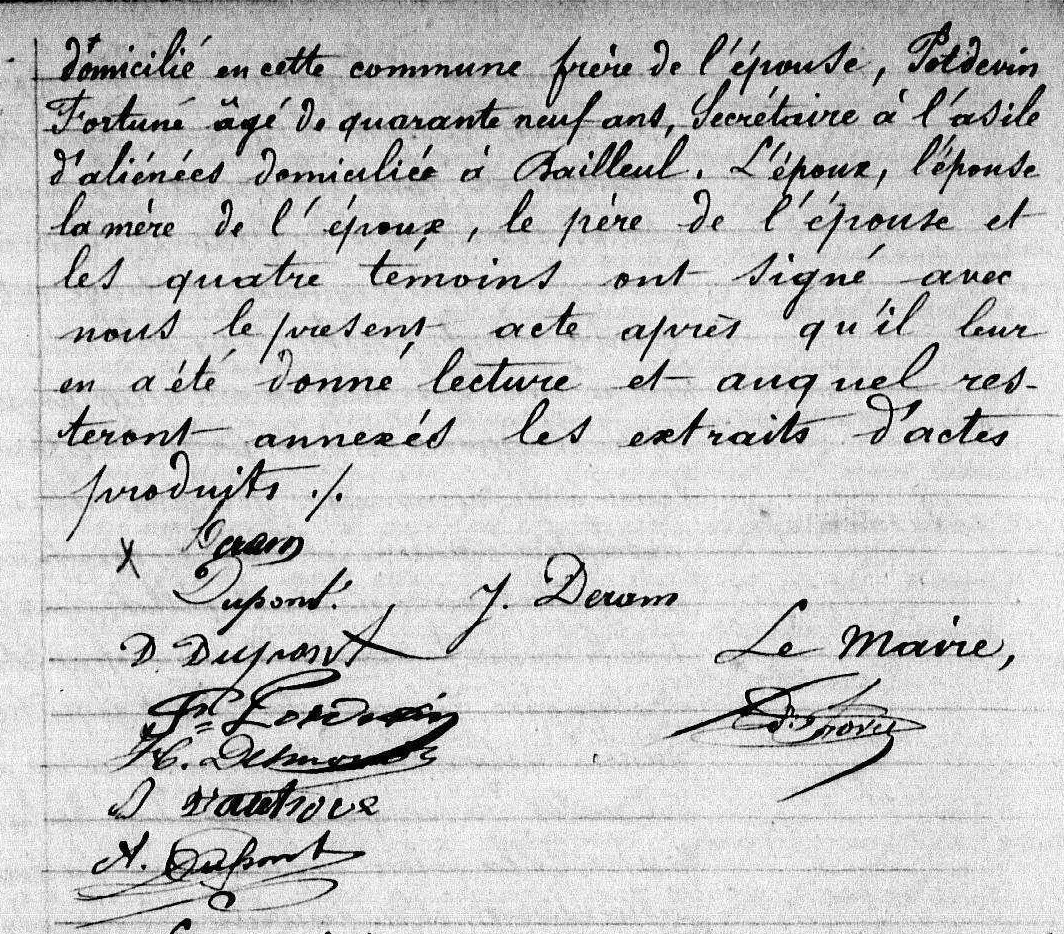 domicilié en cette commune frère de l'épouse, Potdevin
Fortuné âgé de quarante neuf ans, Secrétaire à l'asile
d'aliénées domiciliée à Bailleul. L'époux, l'épouse
la mère de l'époux, le père de l'épouse et
les quatre témoins ont signé avec
nous le present acte après qu'il leur
en a été donné lecture et auquel res-
teront annexés les extraits d'actes
produits ./.
X Deram
Dupont. J. Deram
D Dupont
Le Maire,
A. Dupont